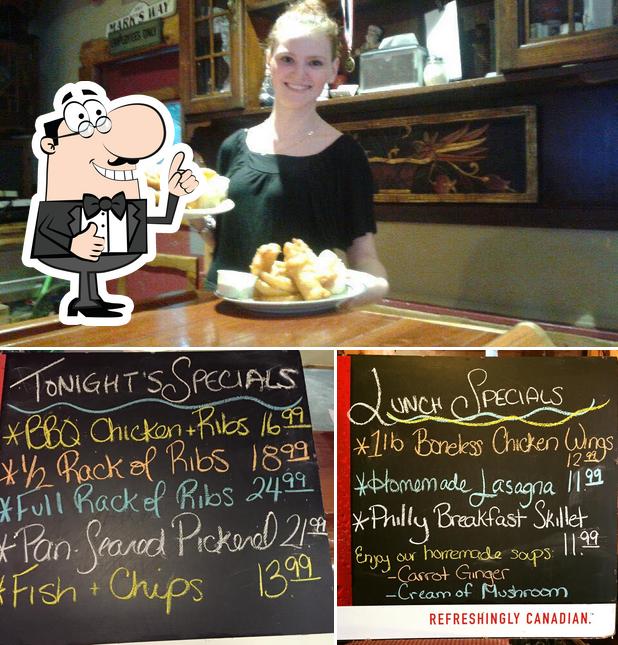 MARK'S WAY
EMPLOYEES ONLY
TONIGHT'S SPECIALS
*BBQ Chicken + Ribs 16.99
*1/2 Rack of Ribs 18.99
*Full Rack of Ribs 24.99
*Pan-Seared Pickerel 21.99
*Fish + Chips 13.99
LUNCH SPECIALS
*1lb Boneless Chicken Wings
12.99
*Homemade Lasagna 11.99
*Philly Breakfast Skillet
11.99
Enjoy our homemade soups:
-Carrot Ginger
-Cream of Mushroom
REFRESHINGLY CANADIAN.™